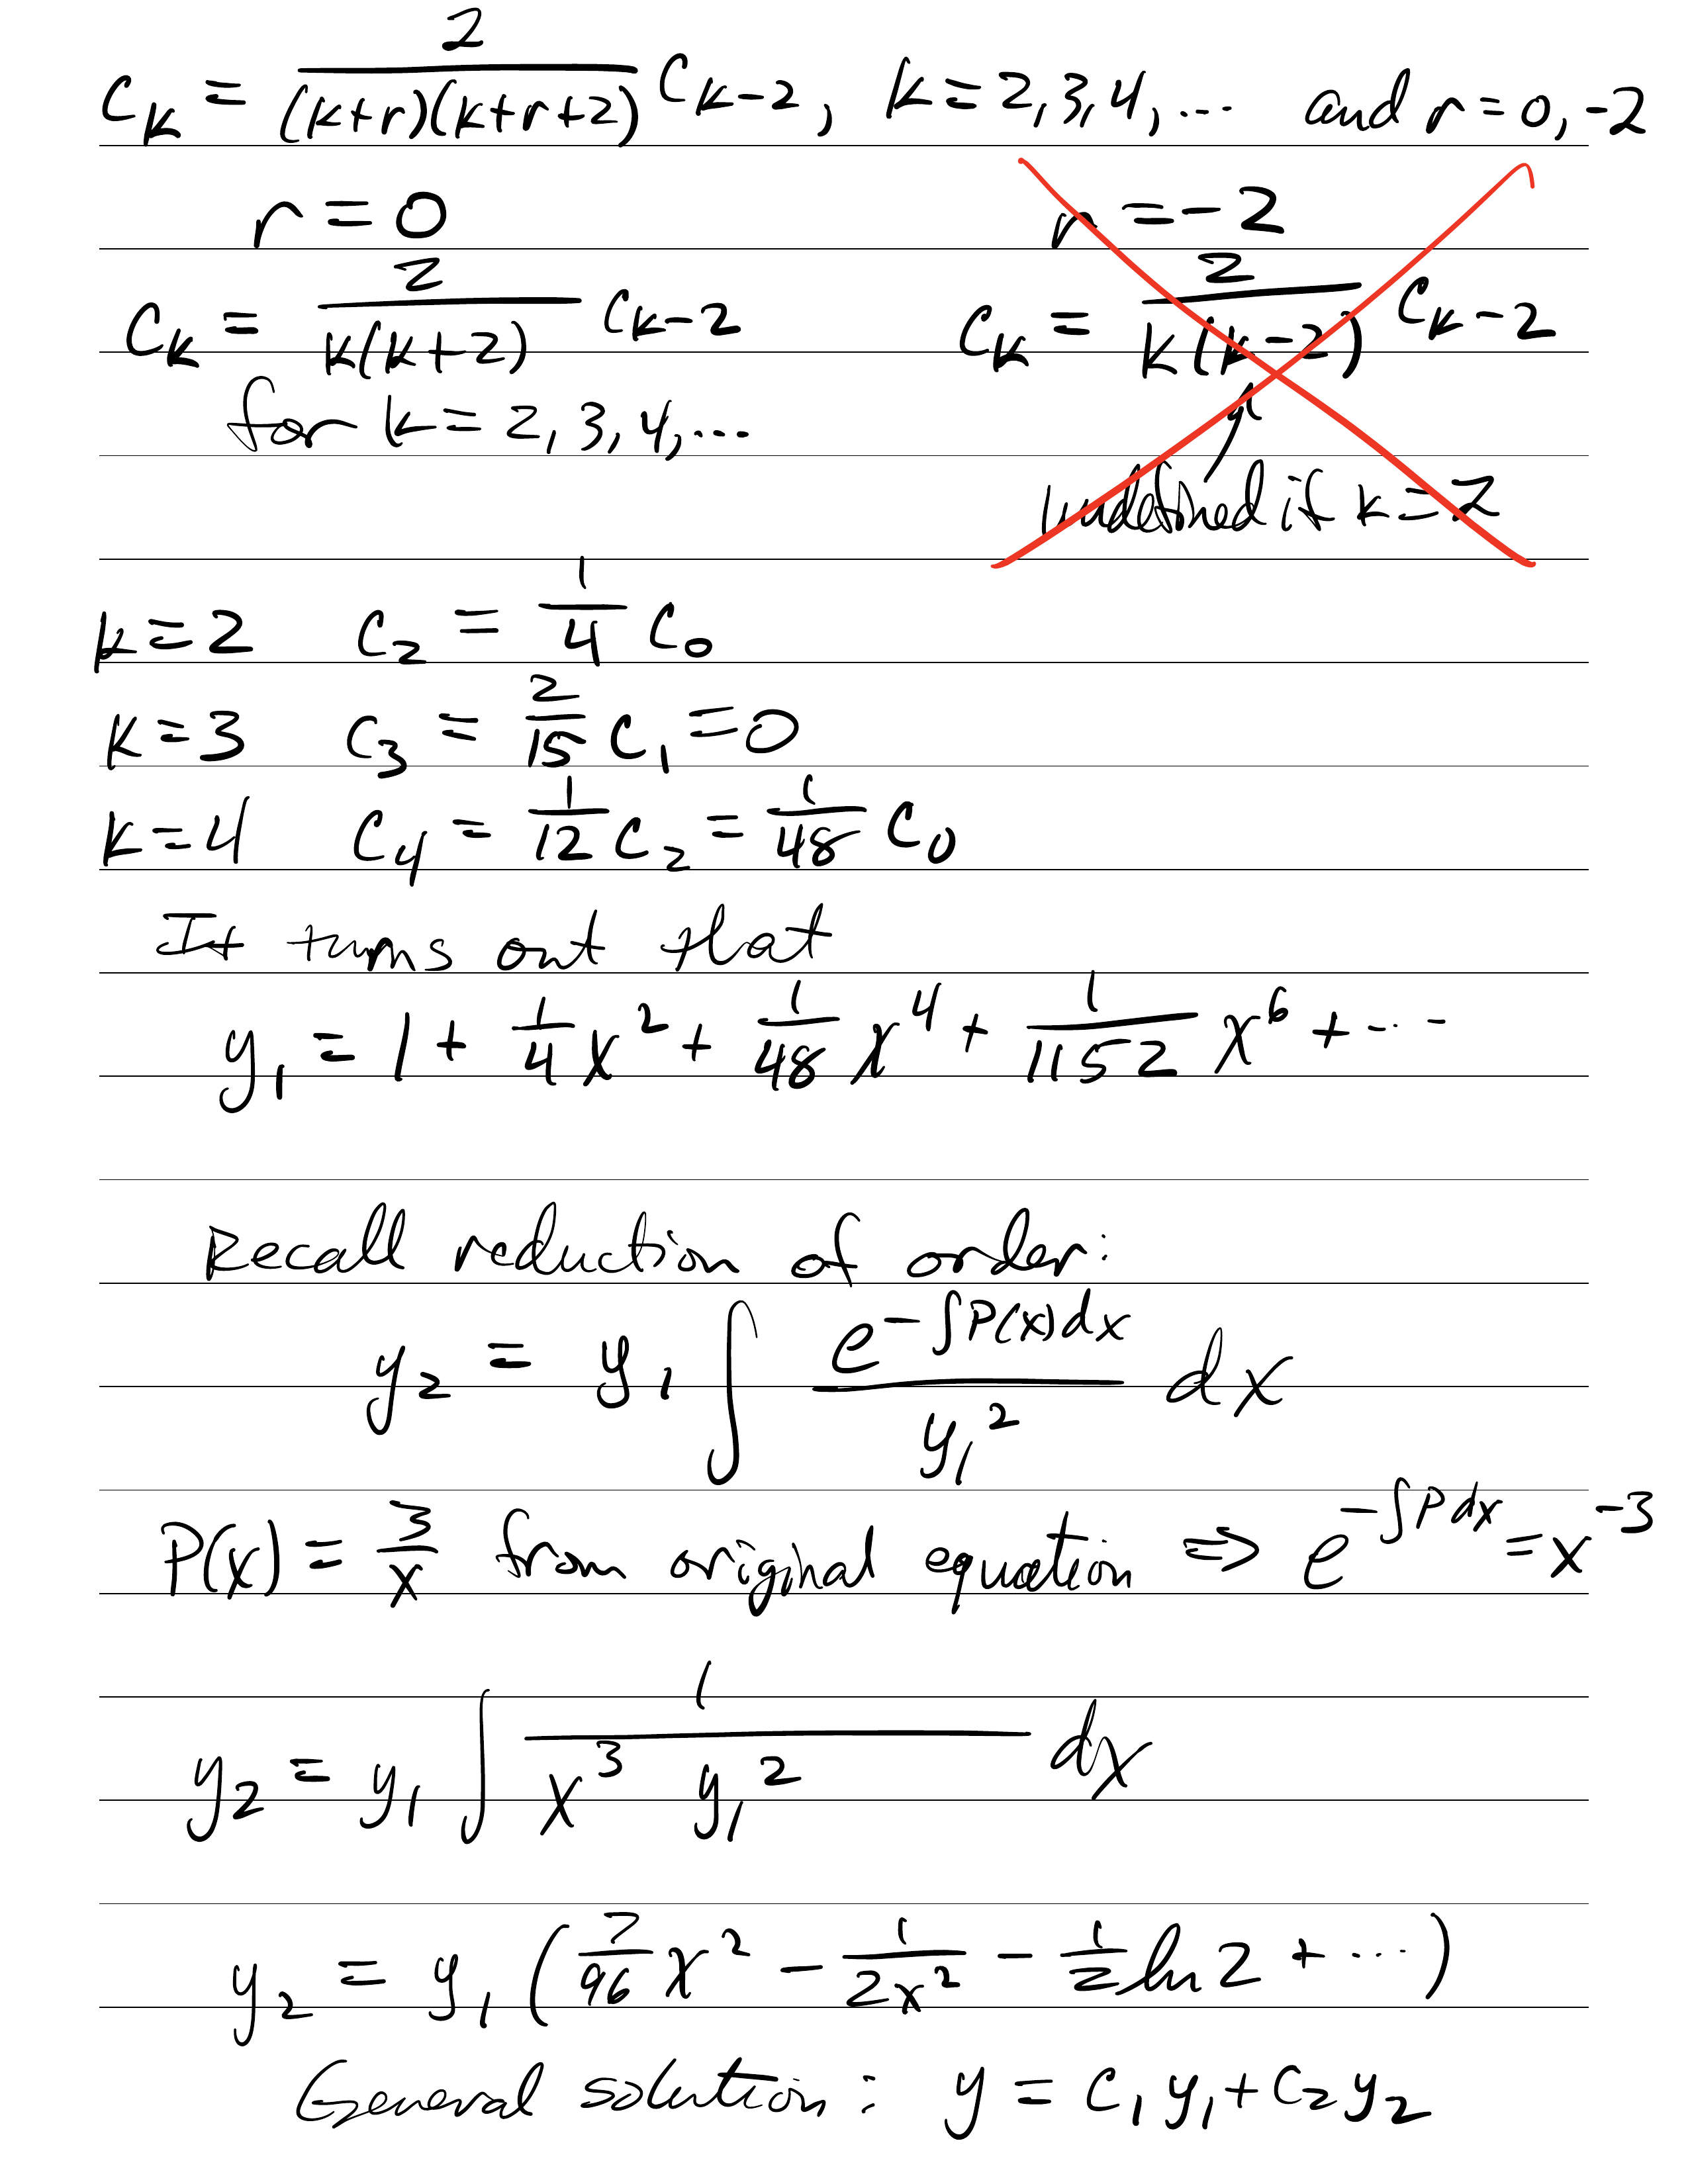 c_k = 2/((k+r)(k+r+2)) c_{k-2}, k=2,3,4,... and r=0,-2
r=0 r=-2
c_k = 2/(k(k+2)) c_{k-2} c_k = 2/(k(k-2)) c_{k-2}
for k=2,3,4,...
undefined if k=2
k=2 c_2 = 1/4 c_0
k=3 c_3 = 2/15 c_1 = 0
k=4 c_4 = 1/12 c_2 = 1/48 c_0
It turns out that
y_1 = 1 + 1/4 x^2 + 1/48 x^4 + 1/1152 x^6 + ...
Recall reduction of order:
y_2 = y_1 ∫ e^{-∫P(x)dx}/y_1^2 dx
P(x) = 3/x from original equation ⇒ e^{-∫P dx} = x^{-3}
y_2 = y_1 ∫ 1/(x^3 y_1^2) dx
y_2 = y_1 (7/96 x^2 - 1/(2x^2) - 1/2 ln 2 + ...)
General solution: y = c_1 y_1 + c_2 y_2